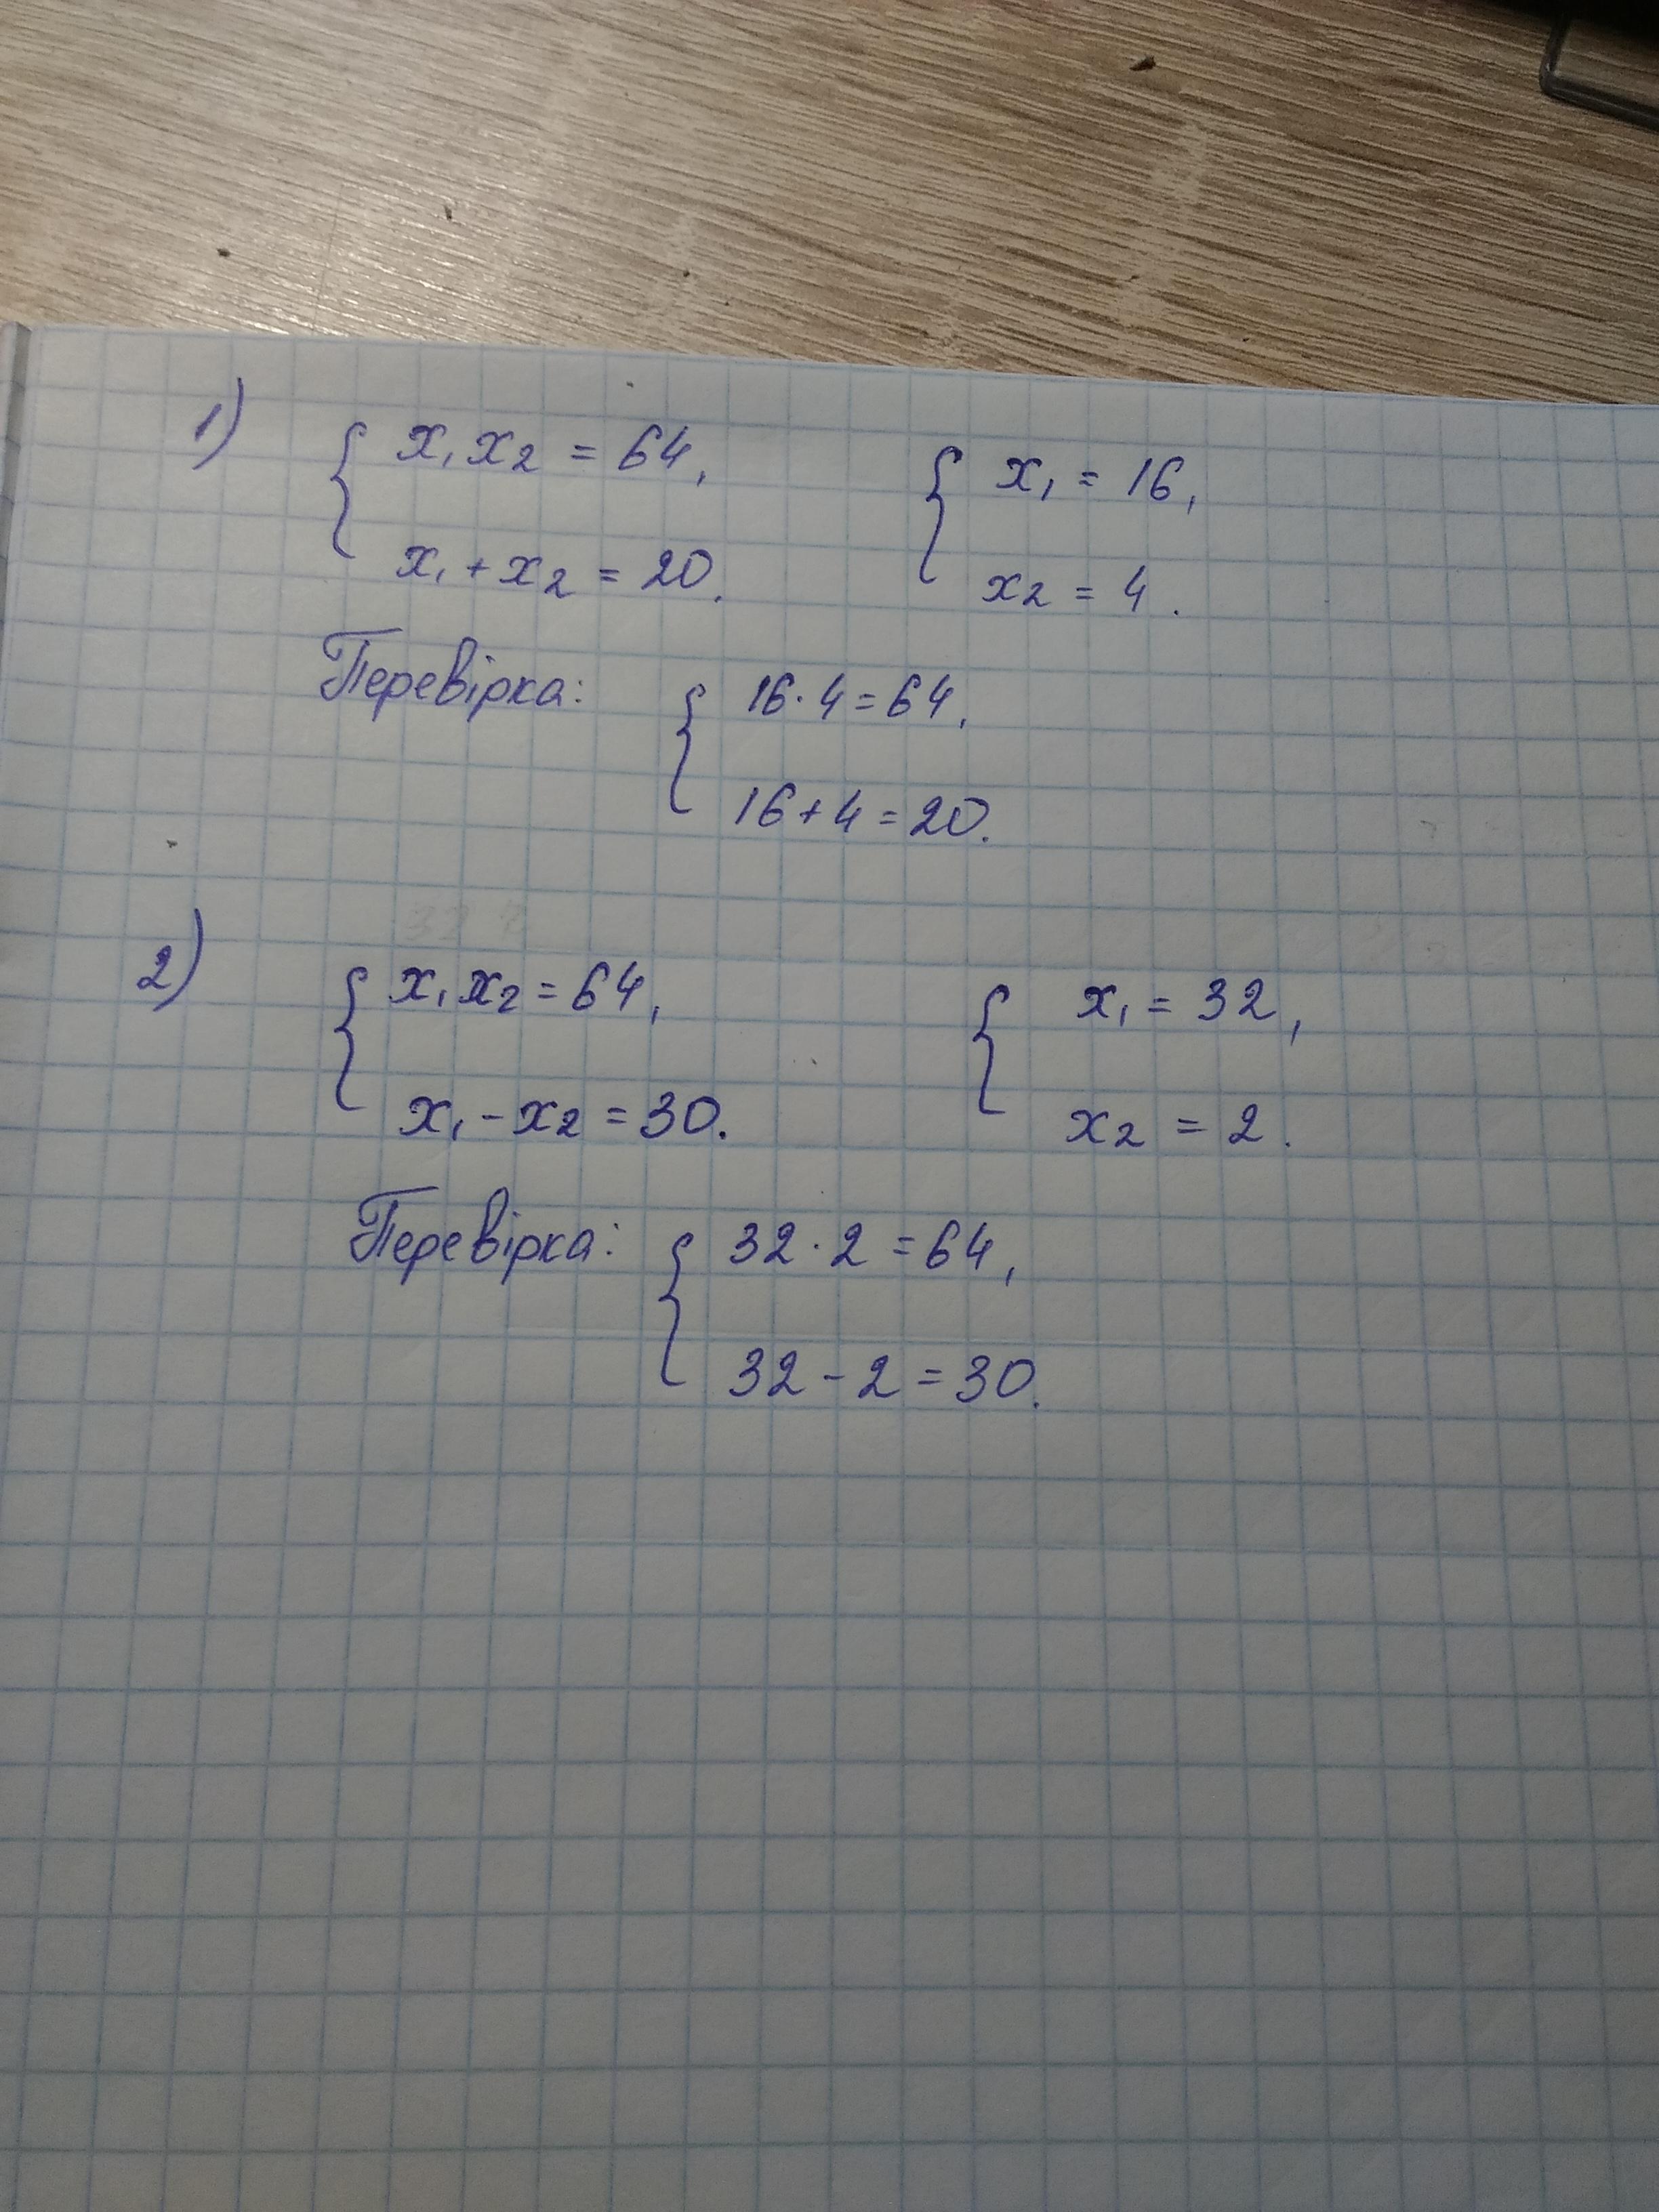 1) { x₁x₂ = 64, { x₁ = 16,
x₁ + x₂ = 20. x₂ = 4.
Перевірка: { 16 · 4 = 64,
16 + 4 = 20.
2) { x₁x₂ = 64, { x₁ = 32,
x₁ - x₂ = 30. x₂ = 2.
Перевірка: { 32 · 2 = 64,
32 - 2 = 30.